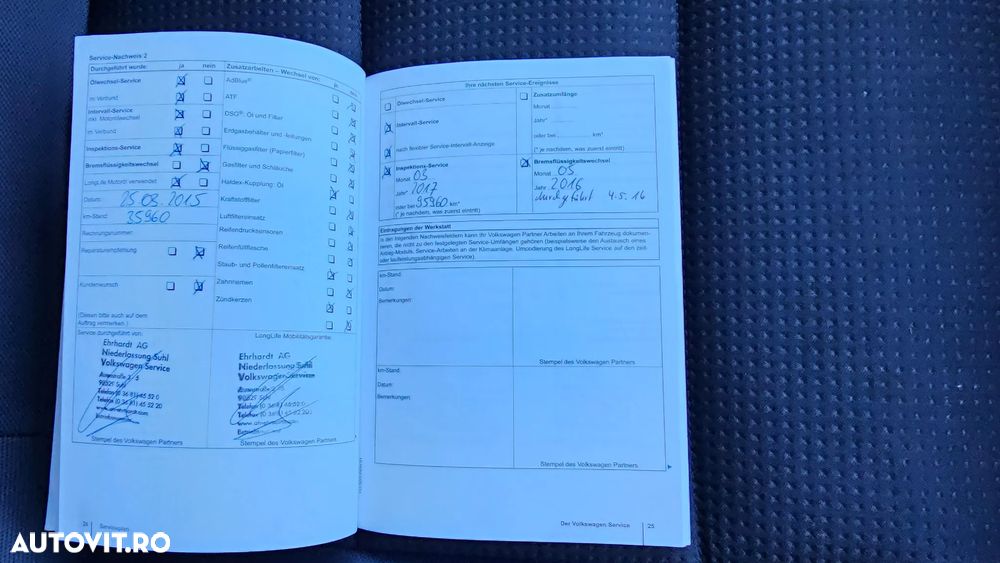 Service-Nachweis 2
Durchgeführt wurde: ja nein
Ölwechsel-Service
im Verbund
Intervall-Service
inkl. Motorölwechsel
im Verbund
Inspektions-Service
Bremsflüssigkeitswechsel
LongLife Motoröl verwendet
Datum: 25.05.2015
km-Stand: 35960
Rechnungsnummer:
Reparaturempfehlung
Kundenwunsch
(Diesen bitte auch auf dem
Auftrag vermerken.)
Service durchgeführt von:
Ehrhardt AG
Niederlassung Suhl
Volkswagen Service
Stempel des Volkswagen Partners
Zusatzarbeiten – Wechsel von:
ja
AdBlue®
ATF
DSG®: Öl und Filter
Erdgasbehälter und -leitungen
Flüssiggasfilter (Papierfilter)
Gasfilter und Schläuche
Haldex-Kupplung: Öl
Kraftstofffilter
Luftfiltereinsatz
Reifendrucksensoren
Reifenfüllflasche
Staub- und Pollenfiltereinsatz
Zahnriemen
Zündkerzen
LongLife Mobilitätsgarantie:
Ehrhardt AG
Niederlassung Suhl
Volkswagen Service
Stempel des Volkswagen Partners
Ihre nächsten Service-Ereignisse
Ölwechsel-Service
Intervall-Service
nach flexibler Service-Intervall-Anzeige
Inspektions-Service
Monat 05
Jahr 2017
oder bei 95960 km*
(* je nachdem, was zuerst eintritt)
Zusatzumfänge
Monat
Jahr*
oder bei km*
(* je nachdem, was zuerst eintritt)
Bremsflüssigkeitswechsel
Monat 05
Jahr 2016
durchgeführt 4.5.16
Eintragungen der Werkstatt
In den folgenden Nachweisfeldern kann Ihr Volkswagen Partner Arbeiten an Ihrem Fahrzeug dokumen-
tieren, die nicht zu den festgelegten Service-Umfängen gehören (beispielsweise den Austausch eines
Airbag-Moduls, Service-Arbeiten an der Klimaanlage, Umcodierung des LongLife Service auf den zeit-
oder laufleistungsabhängigen Service).
km-Stand:
Datum:
Bemerkungen:
Stempel des Volkswagen Partners
km-Stand:
Datum:
Bemerkungen:
Stempel des Volkswagen Partners
Der Volkswagen Service 25
AUTOVIT.RO